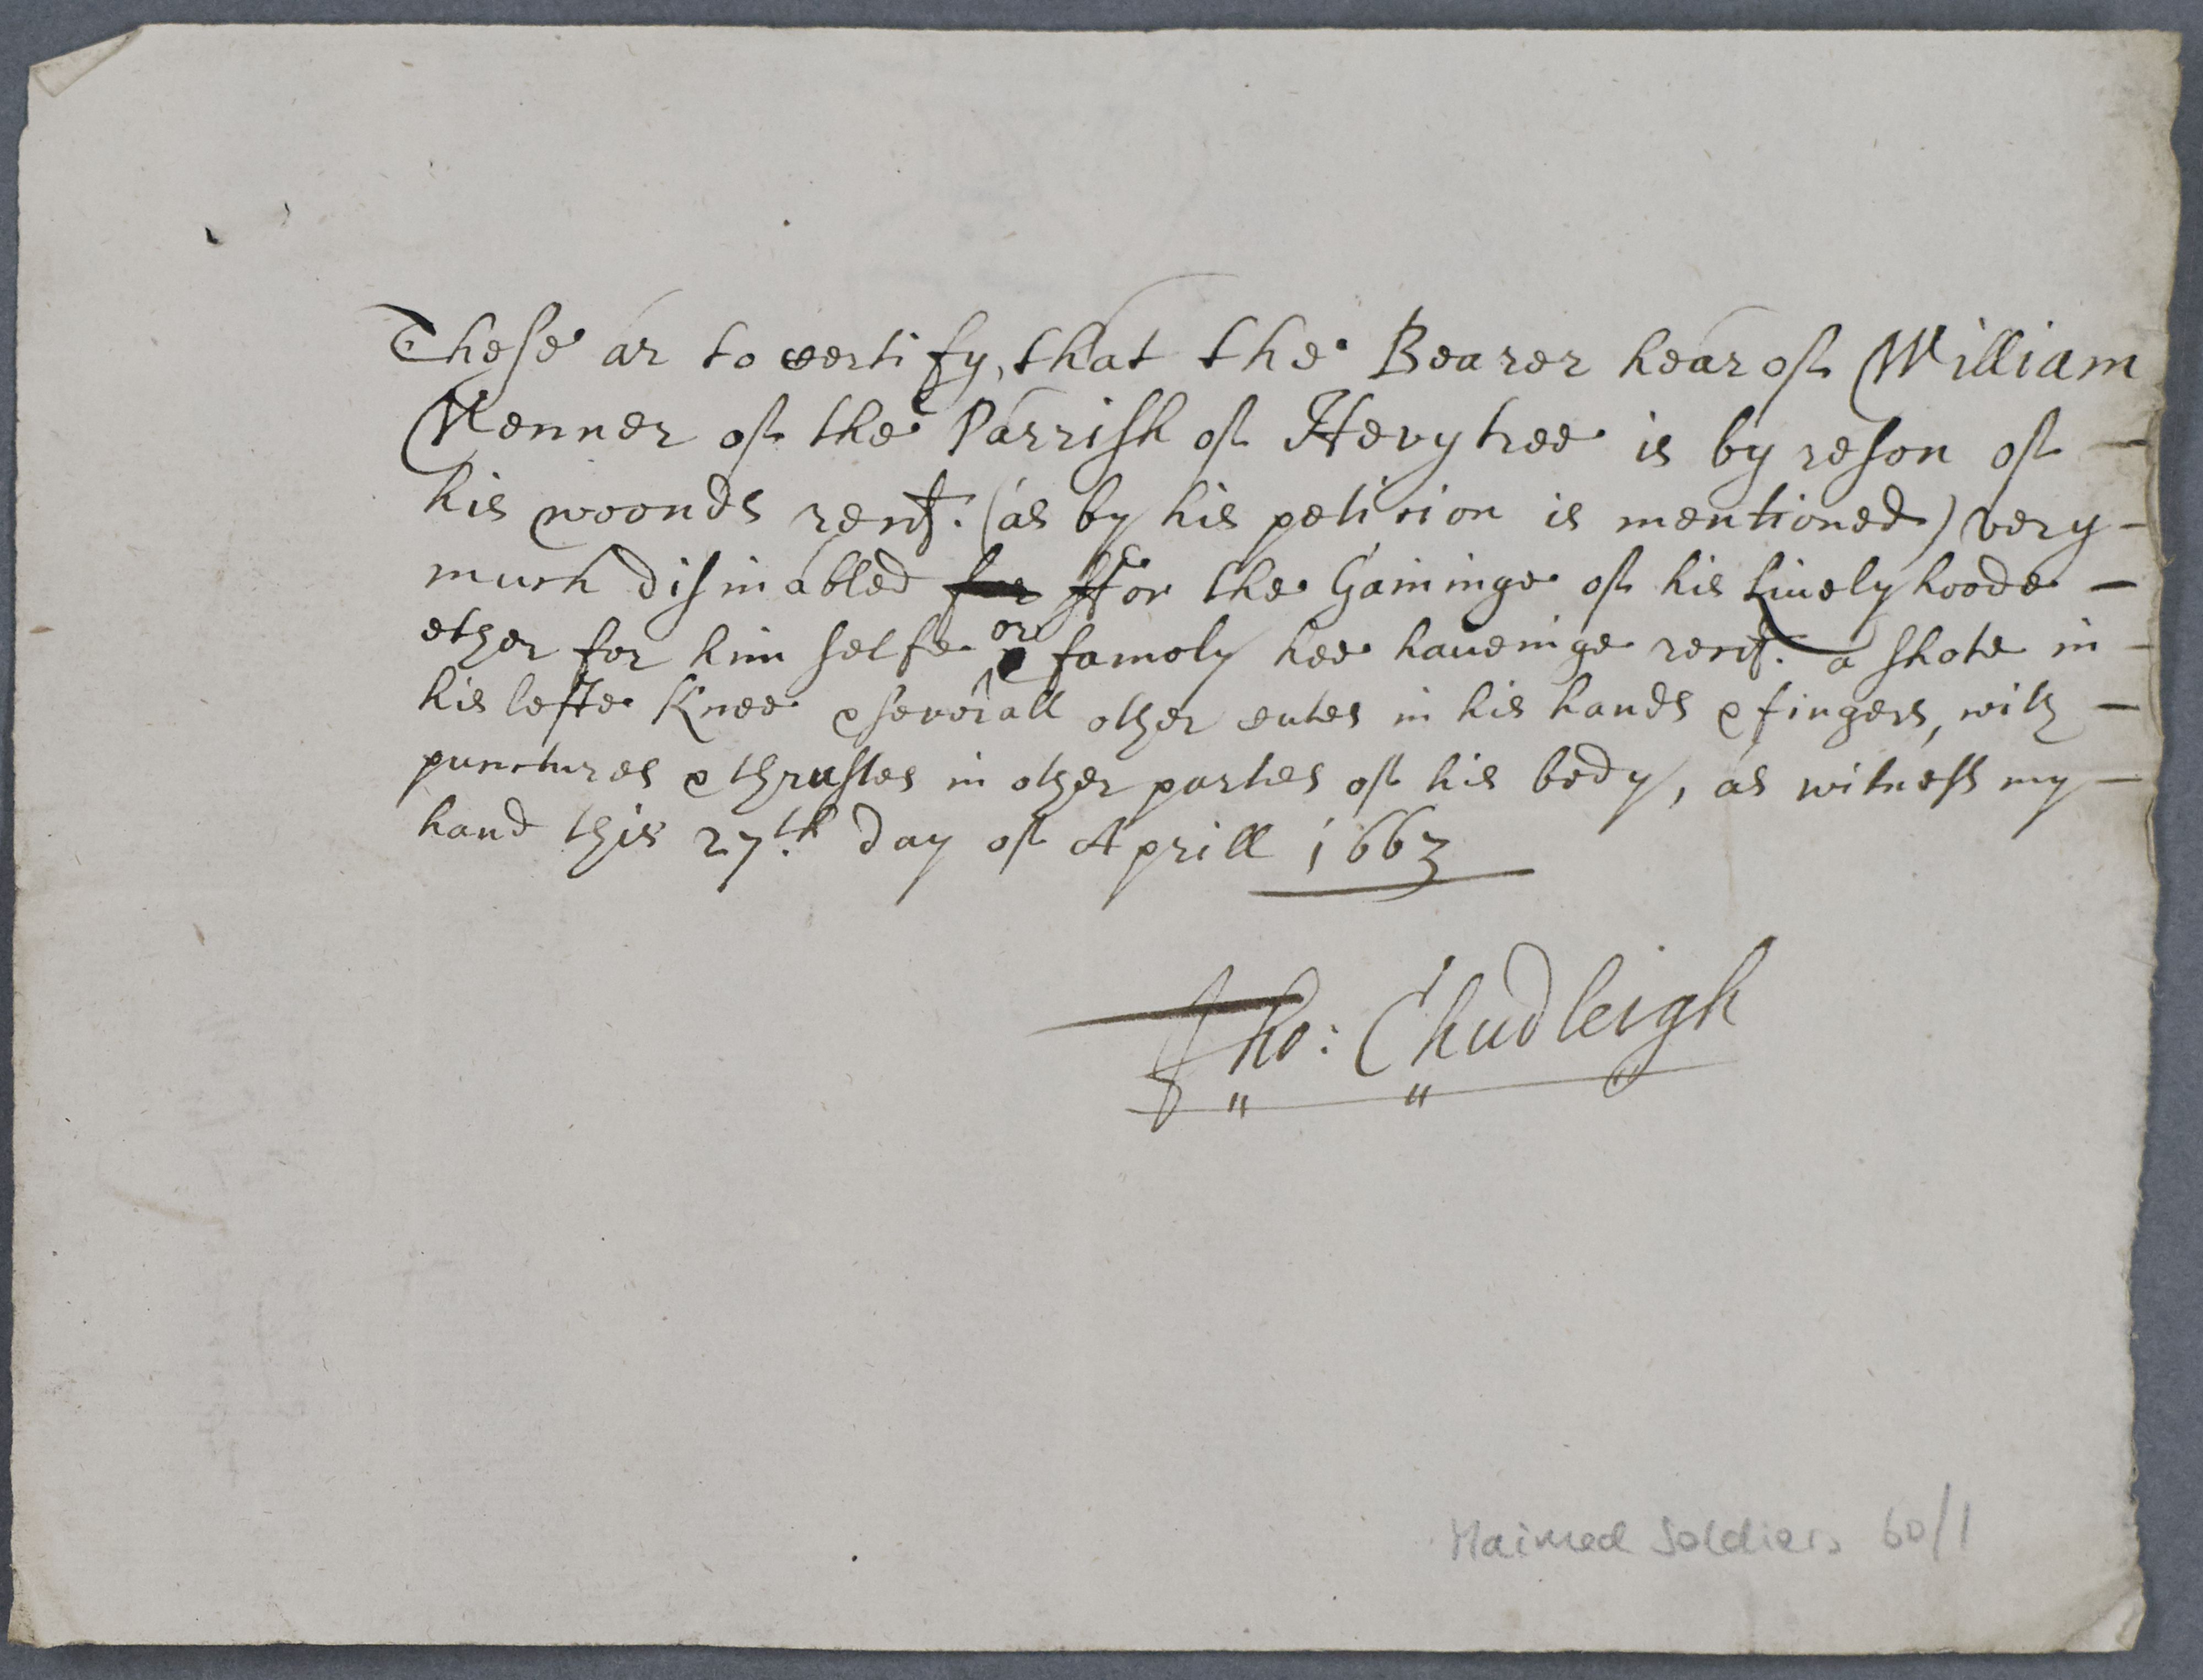 These ar to certify, that the Bearer hear of William
Wenner of the Parrish of Hevytree is by reson of –
his woonds recd. (as by his peticion is mentioned) very –
much disinabled for ffor the Gaininge of his Livelyhoode –
ether for him selfe or famoly hee haueinge recd. a shote in –
his lefte Knee & severall other cutes in his hands & fingers, with –
punctures & thrustes in other partes of his body, as witness my –
hand this 27th. day of Aprill 1663
Tho: Chudleigh
Maimed Soldiers 60/1